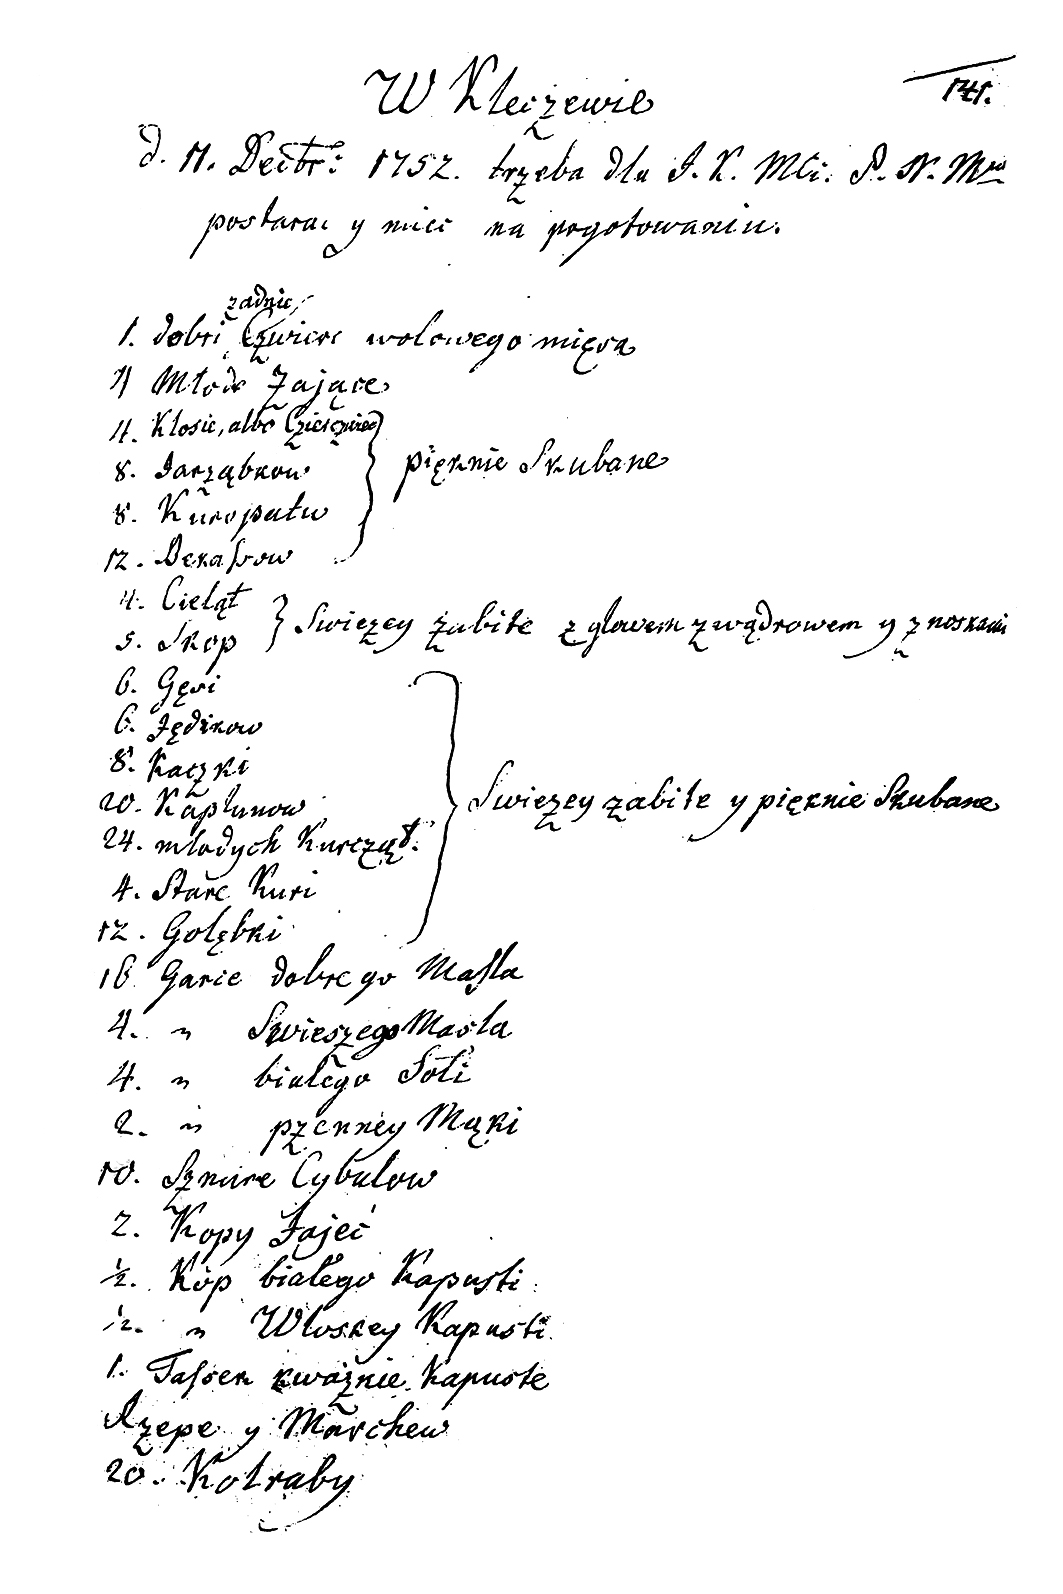 W Kleczewie
141.
d. 11. Decbr: 1752. trzeba dla J. K. Mci. P. N. Mgo
postarac y miec na pogotowaniu.
zadnie
1. dobri Czwierc wolowego mięsa
4 Młode Zające
4. Klosie, albo Czieczwiec
8. Jarząbkow
8. Kuropatw
12. Bekassow
pięknie Skubane
4. Cieląt
5. Skop
Swiezey zabite z glowem z wądrowem y z noskami
6. Gęsi
6. Jędikow
8. Kaczki
20. Kaplunow
24. mlodych Kurcząt.
4. Stare Kuri
12. Golębki
Swiezey zabite y pięknie Skubane
16 Garce dobrego Massla
4. " Swieszego Masla
4. " bialego Soli
2. " pzenney Mąki
10. Sznure Cybulow
2. Kopy Jajec
½. Kóp białego Kapusti
½. " Wloskey Kapusti
1. Fassek kważnie Kapuste
Rzepe y Marchew
20. Kolraby